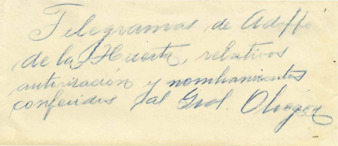 Telegramas de Adolfo
de la Huerta, relativos
autorización y nombramientos
conferidos al Gral. Obregón